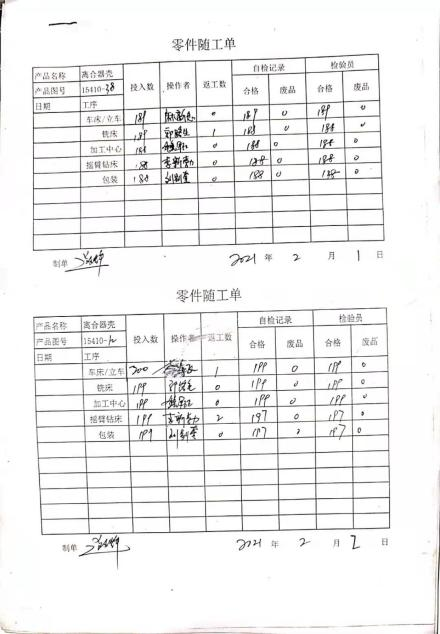 零件随工单
产品名称 离合器壳 投入数 操作者 返工数 自检记录 检验员
产品图号 15410-38 合格 废品 合格 废品
日期 工序
车床/立车 189 0 189 0 189 0
铣床 189 1 188 0 188 0
加工中心 188 0 188 0 188 0
摇臂钻床 188 0 188 0 188 0
包装 188 0 188 0 188 0
制单 2021 年 2 月 1 日
零件随工单
产品名称 离合器壳 投入数 操作者 返工数 自检记录 检验员
产品图号 15410- 合格 废品 合格 废品
日期 工序
车床/立车 200 1 199 0 199 0
铣床 199 0 199 0 199 0
加工中心 199 0 199 0 199 0
摇臂钻床 199 2 197 0 197 0
包装 0 197 197 0
制单 2021 年 2 月 2 日